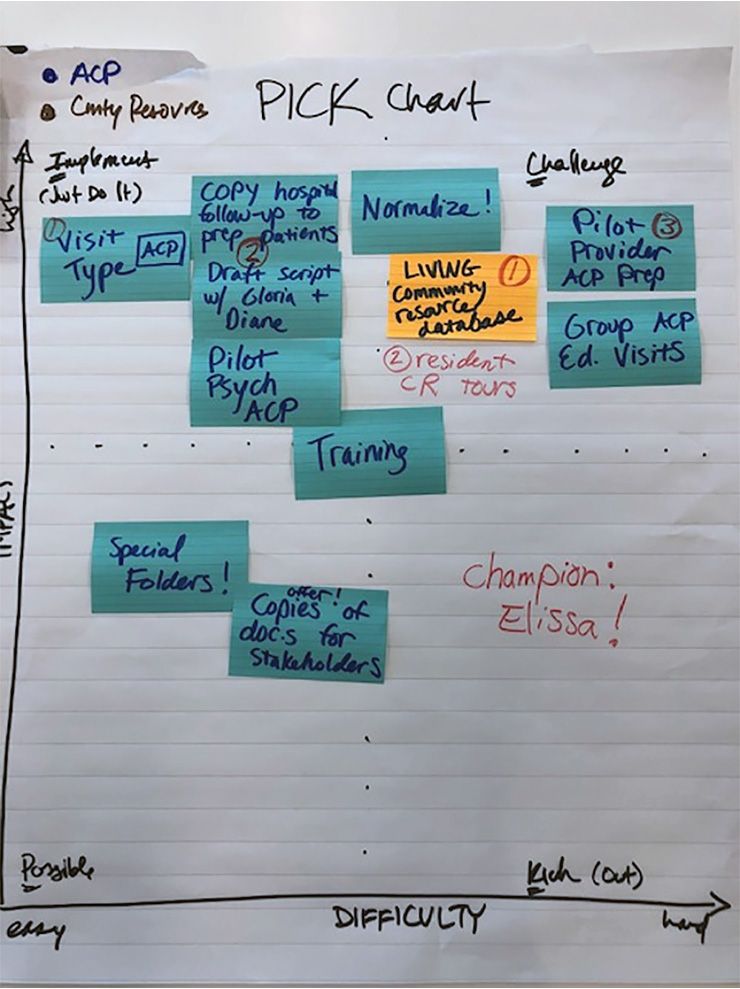 ACP
Cmty Resources
PICK Chart
High
Implement
(Just Do It)
Challenge
① Visit
Type ACP
COPY hospital
follow-up to
prep patients
②
Draft script
w/ Gloria +
Diane
Pilot
Psych
ACP
Normalize!
LIVING ①
Community
resource
database
② resident
CR TOURS
Pilot ③
Provider
ACP Prep
Group ACP
Ed. Visits
Training
IMPACT
Special
Folders!
offer!
Copies of
doc.s for
Stakeholders
Champion:
Elissa!
Possible
Kick (Out)
easy
DIFFICULTY
hard